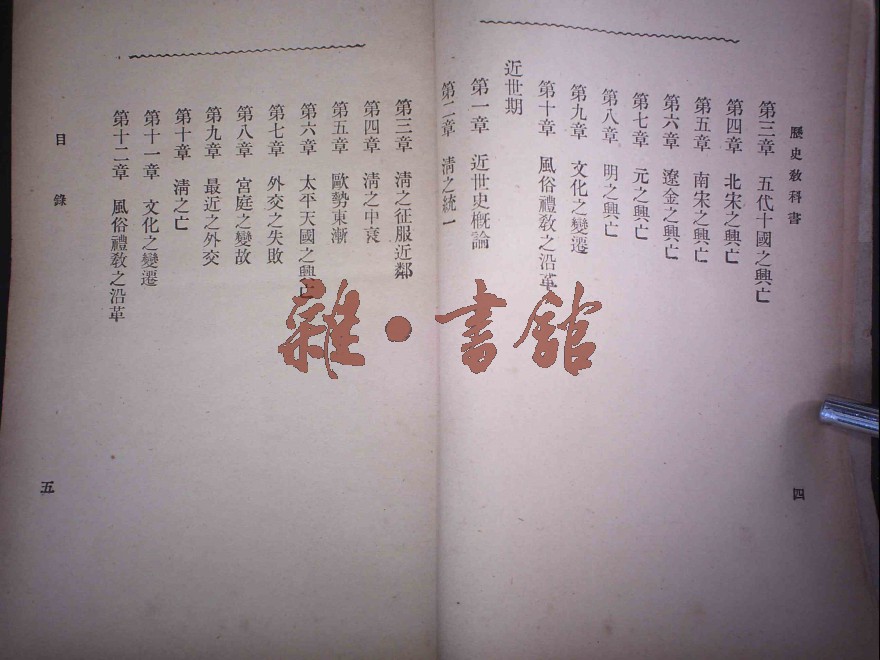 歷史敎科書
第三章 五代十國之興亡
第四章 北宋之興亡
第五章 南宋之興亡
第六章 遼金之興亡
第七章 元之興亡
第八章 明之興亡
第九章 文化之變遷
第十章 風俗禮敎之沿革
近世期
第一章 近世史槪論
第二章 淸之統一
四
第三章 淸之征服近鄰
第四章 淸之中衰
第五章 歐勢東漸
第六章 太平天國之興亡
第七章 外交之失敗
第八章 宮庭之變故
第九章 最近之外交
第十章 淸之亡
第十一章 文化之變遷
第十二章 風俗禮敎之沿革
目錄
五
雜·書館